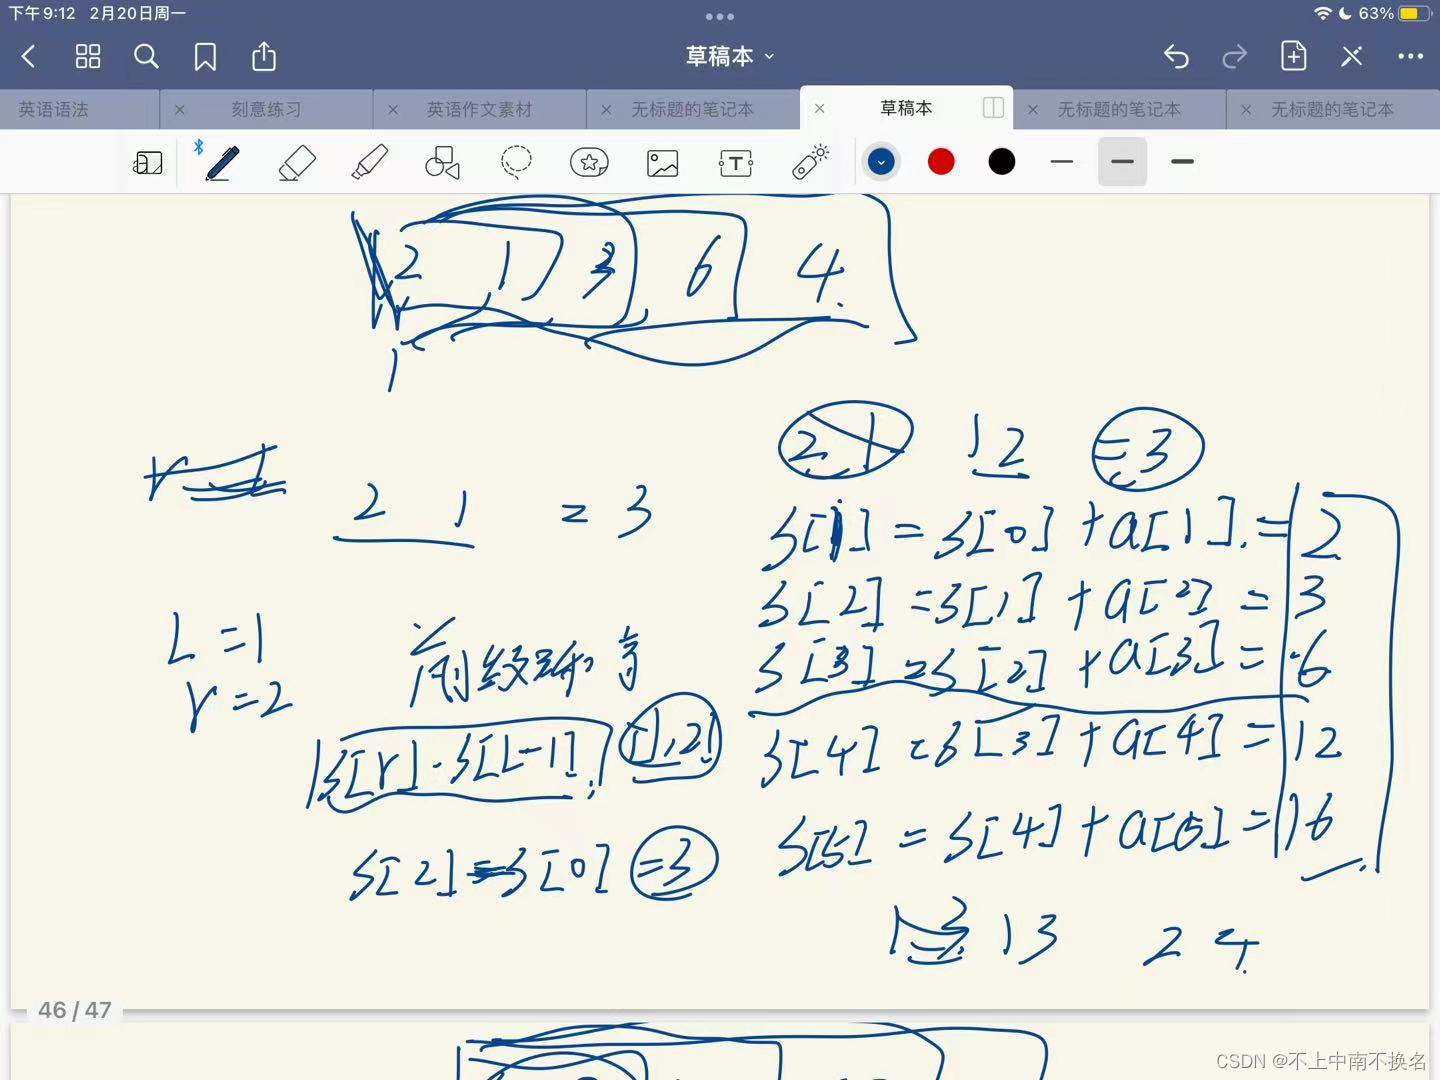 下午9:12 2月20日周一 63%
草稿本
英语语法 刻意练习 英语作文素材 无标题的笔记本 草稿本 无标题的笔记本 无标题的笔记本
2 1 3 6 4
1
2 1 1 2 =3
2 1 = 3
S[1] = S[0] + a[1] = 2
S[2] = S[1] + a[2] = 3
S[3] = S[2] + a[3] = 6
S[4] = S[3] + a[4] = 12
S[5] = S[4] + a[5] = 16
L=1
r=2
前缀和
S[r] - S[L-1] [1,2]
S[2] - S[0] =3
1 3 1 3 2 4
46 / 47
CSDN @不上中南不换名